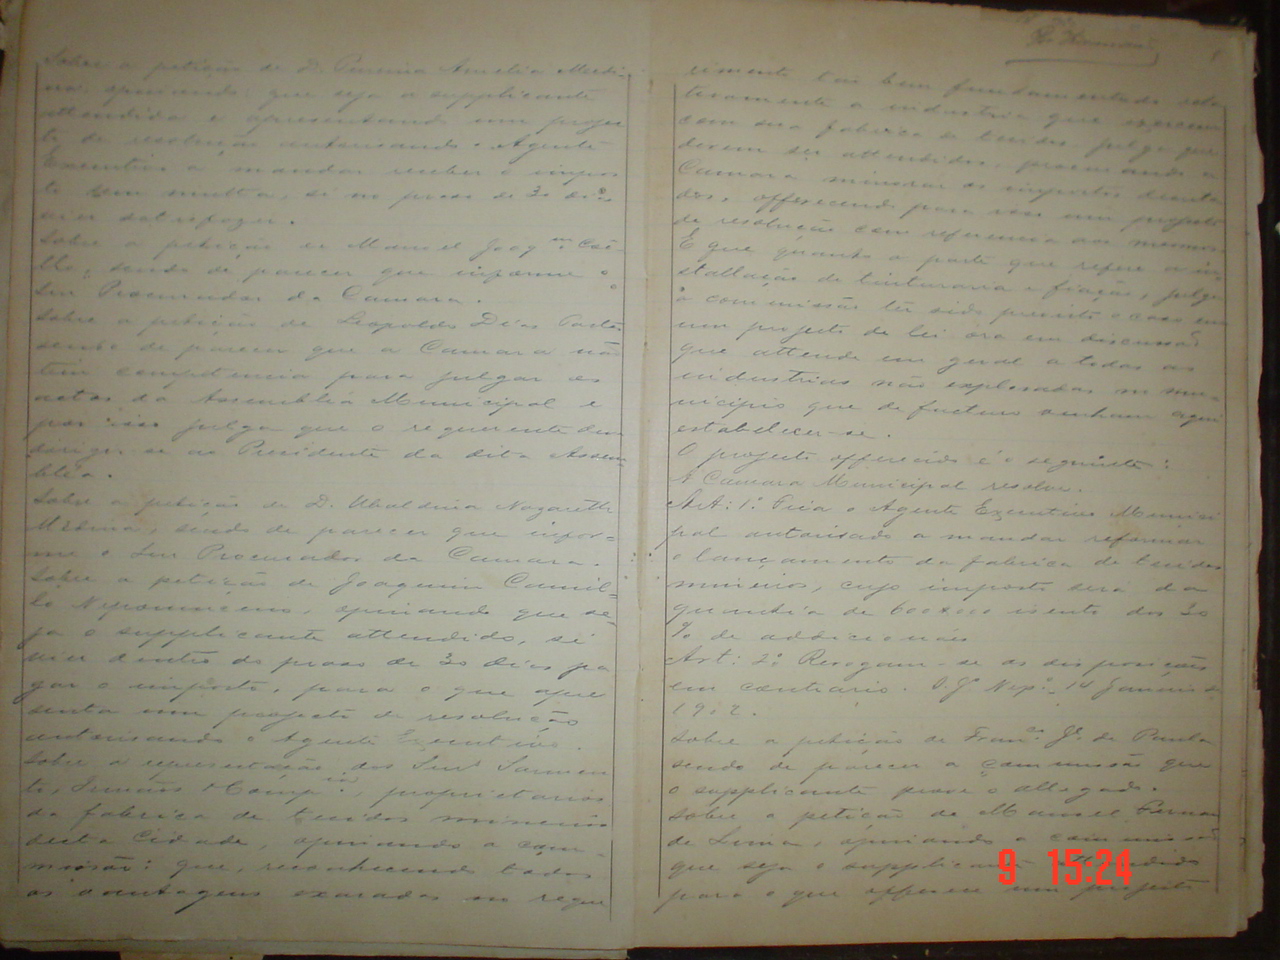 Sobre a petição de D. Amelia Medi-
na, opinando que seja a supplicante
attendida e apresentando um projec
to de resolução autorisando o Agente
Executivo a mandar receber o impos
to sem multa, si no praso de 30 dias
satisfazer.
Sobre a petição de Manoel Joaqm. Coê
lho, sendo de parecer que informe o
Snr Procurador da Camara.
Sobre a petição de Leopoldo Dias
sendo de parecer que a Camara não
tem competencia para julgar os
actos da Assembléa Municipal e
por isso julga que o requerente deve
dirigir-se ao Presidente da dita Assem
bléa.
Sobre a petição de D. Ubaldina Nazareth
sendo de parecer que infor-
me o Snr Procurador da Camara.
Sobre a petição de Joaquim Camil-
lo Nepomuceno, opinando que se-
ja o supplicante attendido, si
vier dentro do praso de 30 dias pa
gar o imposto, para o que apre
senta um projecto de resolução
autorisando o Agente Executivo.
Sobre a representação dos Snrs Sarmen
to, Irmãos & Comp., proprietarios
da fabrica de tecidos mineiros
desta Cidade, opinando a com-
missão: que, reconhecendo todas
as vantagens exaradas no reque
rimento tão bem fundamentado rela
tivamente a industria que exercem
com sua fabrica de tecidos, julga que
devem ser attendidos, procurando a
Camara minorar os impostos
dos, offerecendo para isso um projecto
de resolução com referencia aos mesmos.
E que quanto a parte que refere a in
stallação de tinturaria e fiação, julga
a commissão ter sido previsto o caso em
um projecto de lei ora em discussão
que attende em geral a todas as
industrias não exploradas no mu-
nicipio que de futuro venham aqui
estabelecer-se.
O projecto offerecido é o seguinte:
A Camara Municipal resolve.
Art: 1º Fica o Agente Executivo Munici
pal autorisado a mandar reformar
o lançamento da fabrica de tecidos
mineiros, cujo imposto será da
quantia de 600$000 isento dos 30
% de addicionaes
Art: 2º Revogam-se as disposições
em contrario. 14 Janeiro de
1902.
Sobre a petição de Franco. Je. de Paula
sendo de parecer a commissão que
o supplicante prove o allegado.
Sobre a petição de Manoel
de Lima, opinando a commissão
que seja o supplicante attendido
para o que offerece um projecto
9 15:24